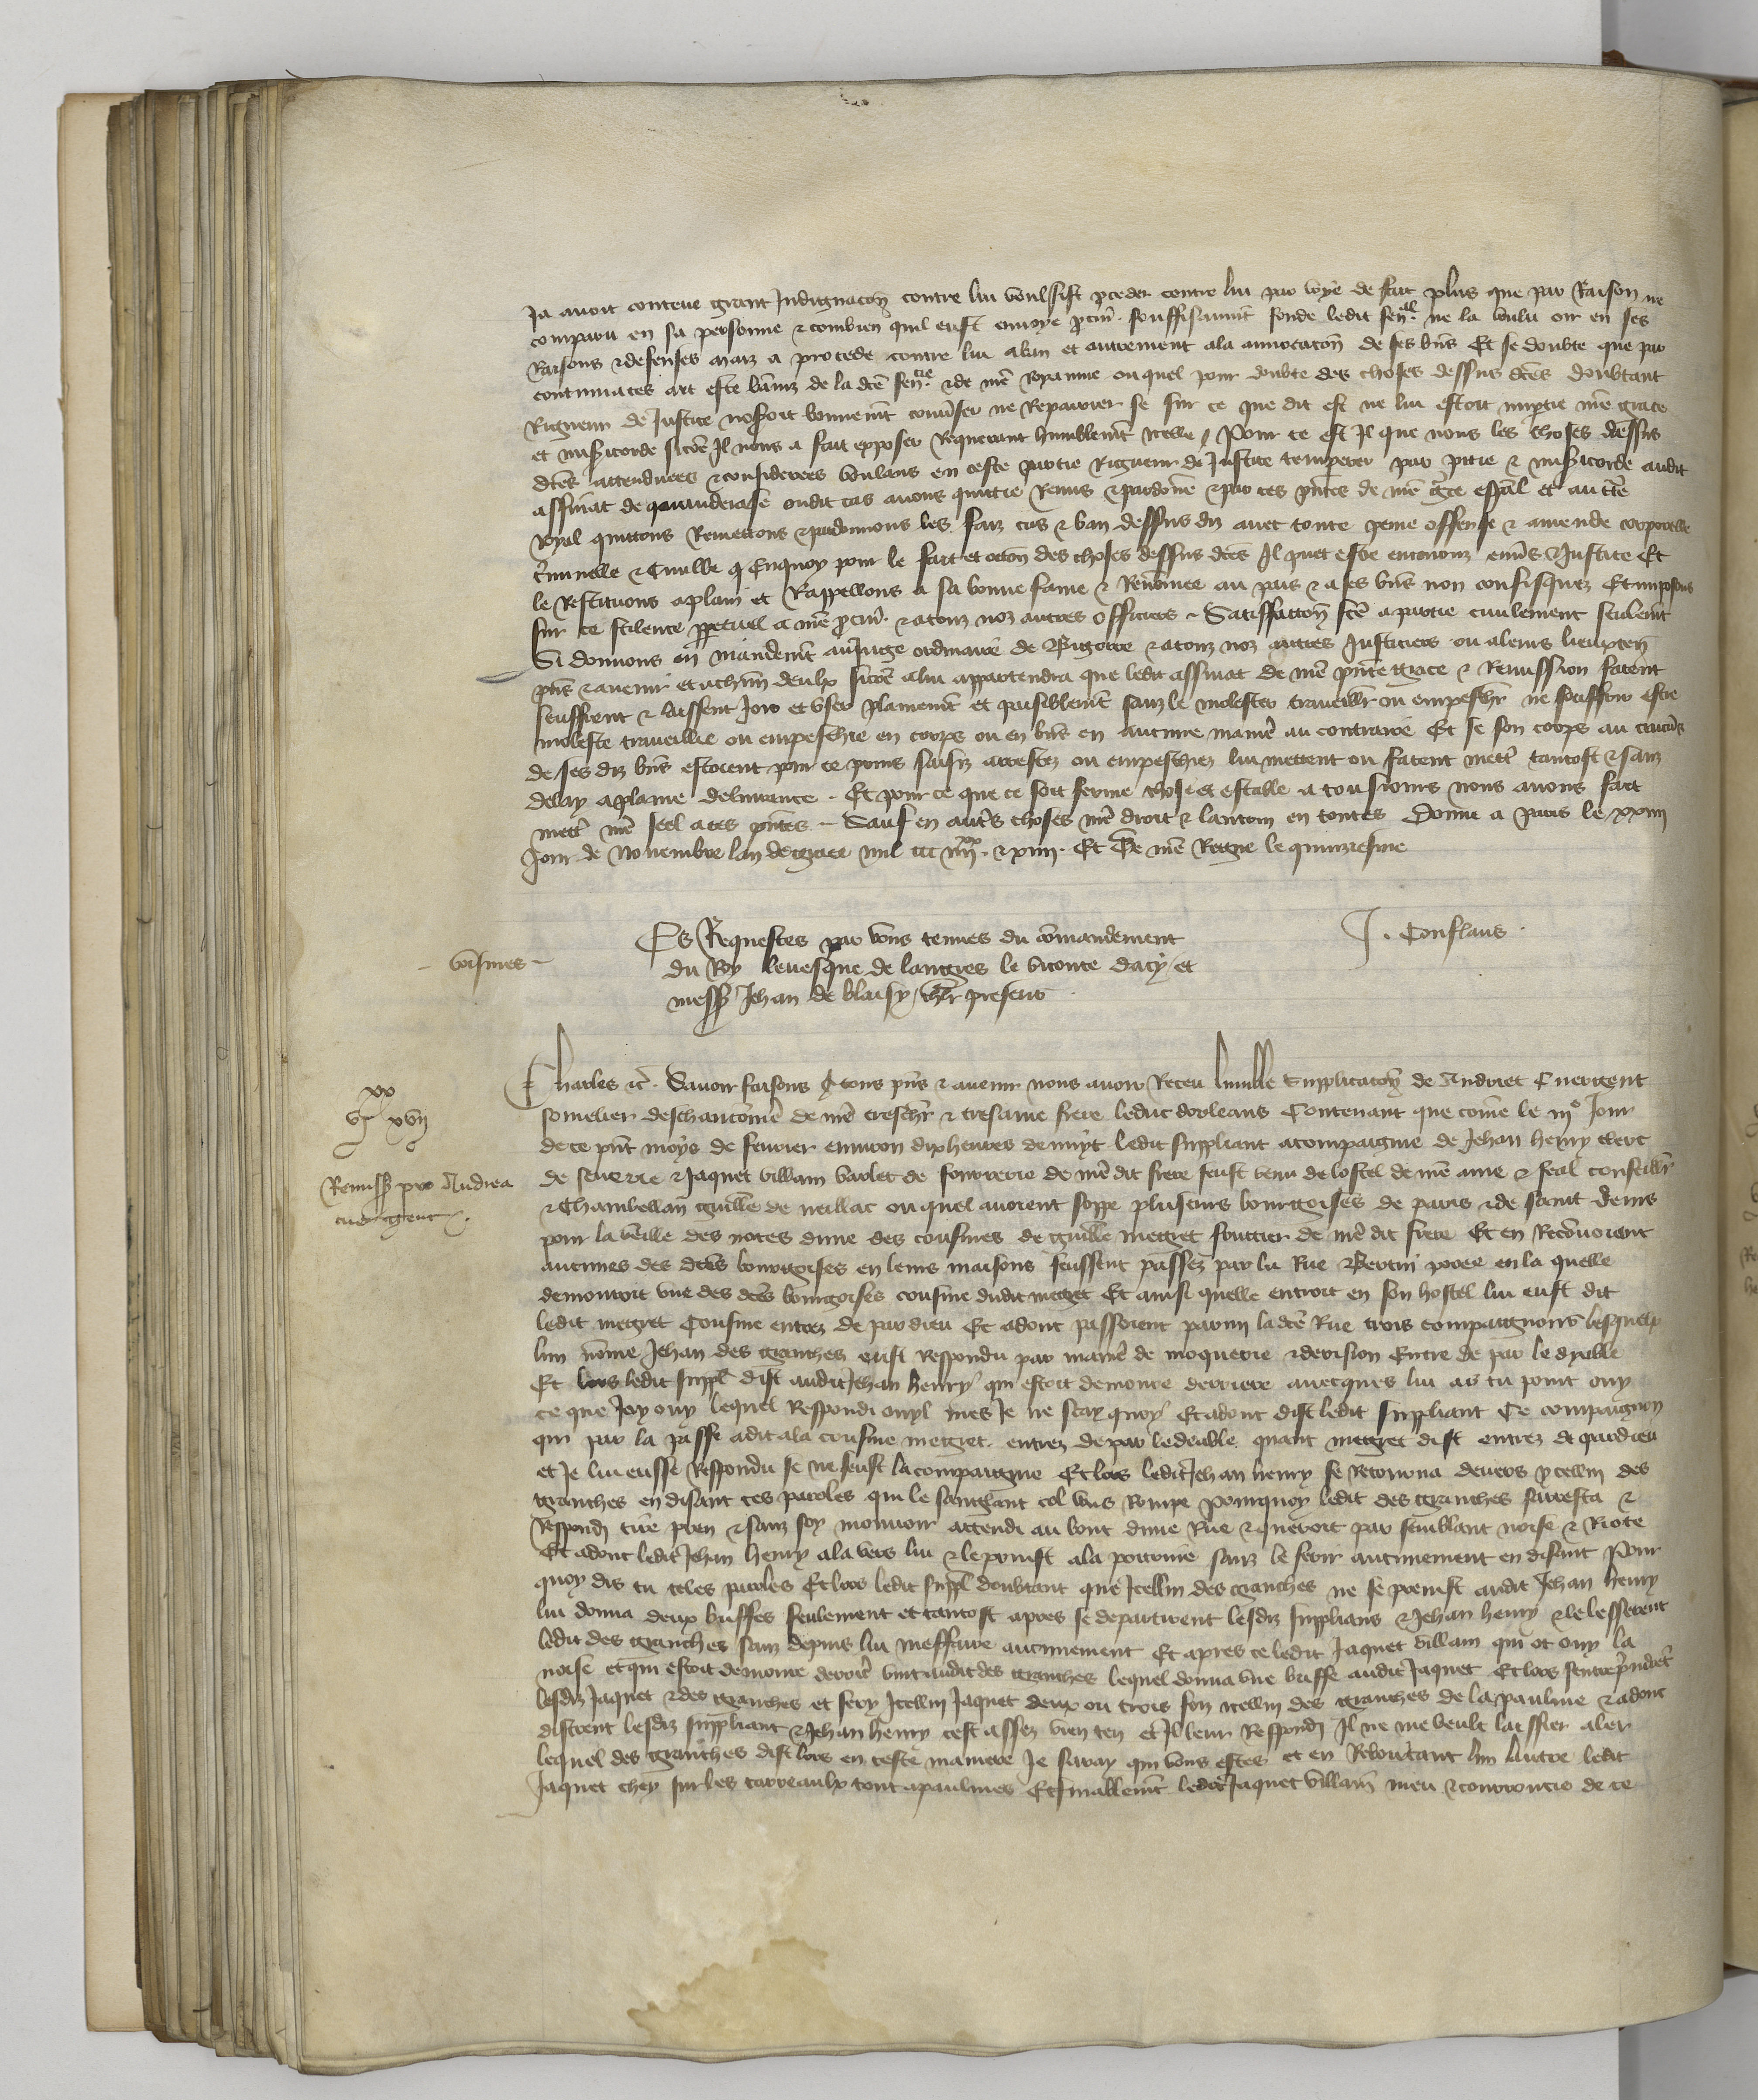 Ja avoit conceue grant Indignacõn contre lui voulsist pceder contre lui par voye de fait plus que par Raison ne
comparu en sa personne & combien quil eust envoye pcur̃. souffisaumt̃ fonde ledit sen.al ne la voulu oir en ses
Raisons & defenses maiz a procede contre lui a ban et autrement ala annotacõn de ses biẽs Et se doubte que par
contumaces ait este bãniz de la dcẽ sen.cie & de nrẽ Royaume ouquel pour doubte des choses dessus dcẽs doubtant
Rigueur de Justice noseroit bonnemt̃ convser ne Repairier se sur ce que dit est ne lui estoit impartie nrẽ grace
et misicorde sicõe Il nous a fait exposer Requerant humblemt̃ icelle / Pour ce est Il que nous les choses dessus
dcẽs attendues & considerees voulans en ceste partie Rigueur de Justice temperer par pitie & misicorde audit
assinat de ondit cas avons quittie Remis & pardonẽ & par ces pñtes de nrẽ grc̃e espãl et auctẽ
Royal quittons Remettons & pardonnons les faiz cas & ban dessus diz avec toute peine offense & amende corporelle
crĩminelle & Civille q Enquoy pour le fait et occõn des choses dessus dcẽs Il puet estre encouruz envs̃ Justice Et
le Restituons aplain et Rappellons a sa bonne fame & Renõmee au païs & a ses biẽs non confisquez Et imposons
sur ce scilence ppetuel a nrẽ pcur̃. & atouz noz autres officiers - Satisfaccõn fcẽ a partie civilement seulemt̃
Si donnons en mandemt̃ au Juge ordinaire de Bigorre & atouz noz autres Justiciers ou aleurs lieuxten̄
pñs & avenir et achũn deulx sicõe alui appartendra que ledit assinat de nrẽ pñte grace & Remission facent
seuffrent & laissent Joir et user plainemt̃ et paisiblemt̃ sanz le molester travaillr̃ ou empeschr̃ ne souffrir estre
moleste travaillie ou empeschie en corps ou en biẽs en aucune manierẽ au contraire Et se son corps ou aucũs
de ses diz biẽs estoient pour ce prins saisiz arrestez ou empeschiez lui mettent ou facent mettr̃ tantost & sanz
delay aplaine delivrance . Et pour ce que ce soit ferme chose et estable a tousiours nous avons fait
mettr̃ nrẽ seel a ces pñtes - Sauf en autrs̃ choses nrẽ droit & lautrui en toutes Donne a Paris le xxiiii
Jour de Novembre lan de grace mil ccc iiiixx. & xiiii. Et De nrẽ Regne le quinziesme
Es Requestes par vous tenues du cõmandement
du Roy levesque de Langres le viconte dacy et
mess Jehan de blaisy / chlr̃ presens
J. Conflans
- voisines -
xx
vi xvii
Remiss pro Andrea
cuer gent
Charles &c̃. Savoir faisons a tous pñs & avenir nous avoir Receu lumble Supplicacõn de Andriet Cuergent
somelier deschanconnẽ de nrẽ treschr̃ & tresame frere leduc dorleans Contenant que cõme le iiie Jour
de ce pñt moys de fevrier environ dix heures denuyt ledit suppliant acompaignie de Jehan henry clerc
de seuerie & Jaquet villam varlet de fourrerie de nrẽ dit frere feust venu de lostel de nrẽ ame & feal conseillr̃
& Chambellan guillẽ de neillac ouquel avoient soppe pluseurs bourgoises de paris & de saint denis
pour la veille des noces dune des cousines de guillẽ megret fruitier de nrẽ dit frere Et en Reconvoient
aucunes des dcẽs bourgoises en leurs maisons feussent passez par la Rue Bertin poree en la quelle
demouroit une des dcẽs bourgoises cousine dudit megret Et ainsi quelle entroit en son hostel lui eust dit
ledit megret Cousine entrez de par dieu Et adont passoient parmi ladcẽ Rue trois compaignons lesquelx
lun nõme Jehan des granches eust Respondu par manierẽ de moquerie & derision Entre de par le dyable
Et lors ledit suppl dist audit Jehan henry qui estoit demoure derriere avecques lui as tu point ouy
ce que Jay ouy lequel Respondi ouyl mes Je ne scay quoy Et adont dist ledit suppliant Ce compaignon
qui par la passe adit ala cousine megret. entrez depar ledeable quant megret dist entrez de par dieu
et Je lui eusse Respondu se ne feust la compaignie Et lors ledit Jehan henry se Retourna devers ycellui des
granches en disant ces paroles qui le sanglant col vous Rompe Pourquoy ledit des granches sarresta &
Respondi & sanz soy mouvoir attendi au bout dune Rue & queroit par semblant noise & Riote
Et adont ledit Jehan henry ala vers lui & le prinst ala poitrine sanz le ferir aucunement en disant Pour
quoy dis tu teles paroles Et lors ledit suppl doubtant que Icellui des granches ne se prenist audit Jehan henry
lui donna deux buffes seulement et tantost apres se departirent lesdiz supplians & Jehan henry & le lesserent
ledit des granches sanz depuis lui meffaire aucunement Et apres ce ledit Jaquet villam qui ot ouy la
noise et qui estoit demoure derrierẽ vint audit des granches lequel donna une buffe audit Jaquet Et lors sentreprindret̃
lesdiz Jaquet & des granches et fery Icellui Jaquet deux ou trois foiz icellui des granches de la paulme & adonc
distrent lesdiz suppliant & Jehan henry cest assez vien ten et Il leur Respondi Il ne me veult laissier aler
lequel des granches dist lors en ceste maniere Je saray qui vous estes et en Reboutant lun lautre ledit
Jaquet chey sur les carreaulx tout apaulmes Et finablemt̃ ledit Jaquet villam meu & courroucie de ce